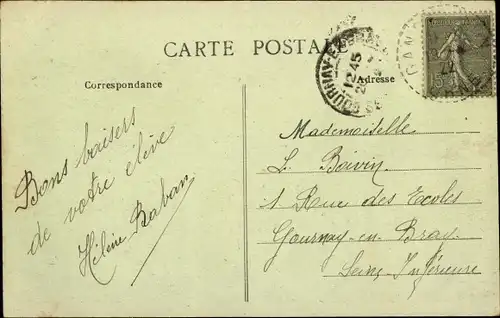 CARTE POSTALE
Correspondance
Adresse
Bons baisers
de votre élève
Hélène Raban
Mademoiselle
L. Boivin
1 Rue des Ecoles
Gournay-en-Bray
Seine Inférieure
GOURNAY-E
12 45